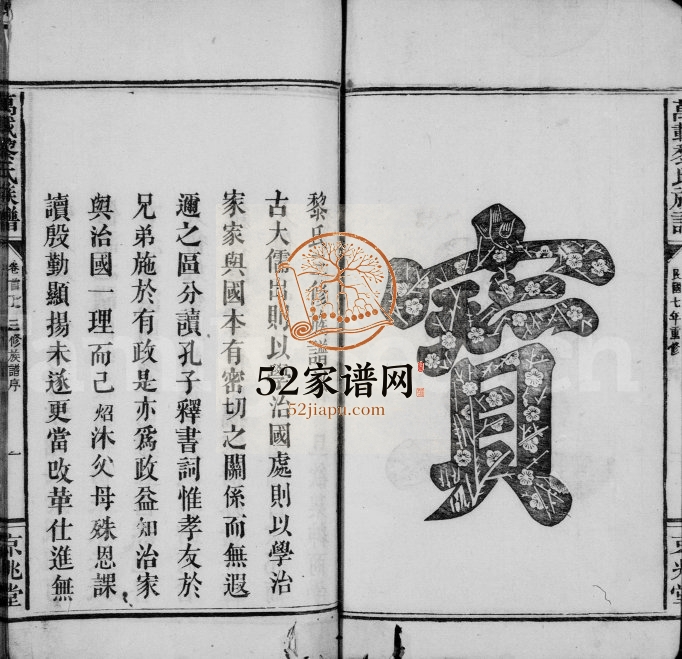 萬載黎氏族譜
民國七年重修
京兆堂
寶
黎氏三修族譜
古大儒出則以學治國處則以學治
家家與國本有密切之關係而無遐
邇之區分讀孔子釋書詞惟孝友於
兄弟施於有政是亦爲政益知治家
與治國一理而已炤沐父母殊恩課
讀殷勤顯揚未遂更當改革仕進無
萬載黎氏族譜
卷首上
三修族譜序
一
京兆堂
52家谱网
52jiapu.com